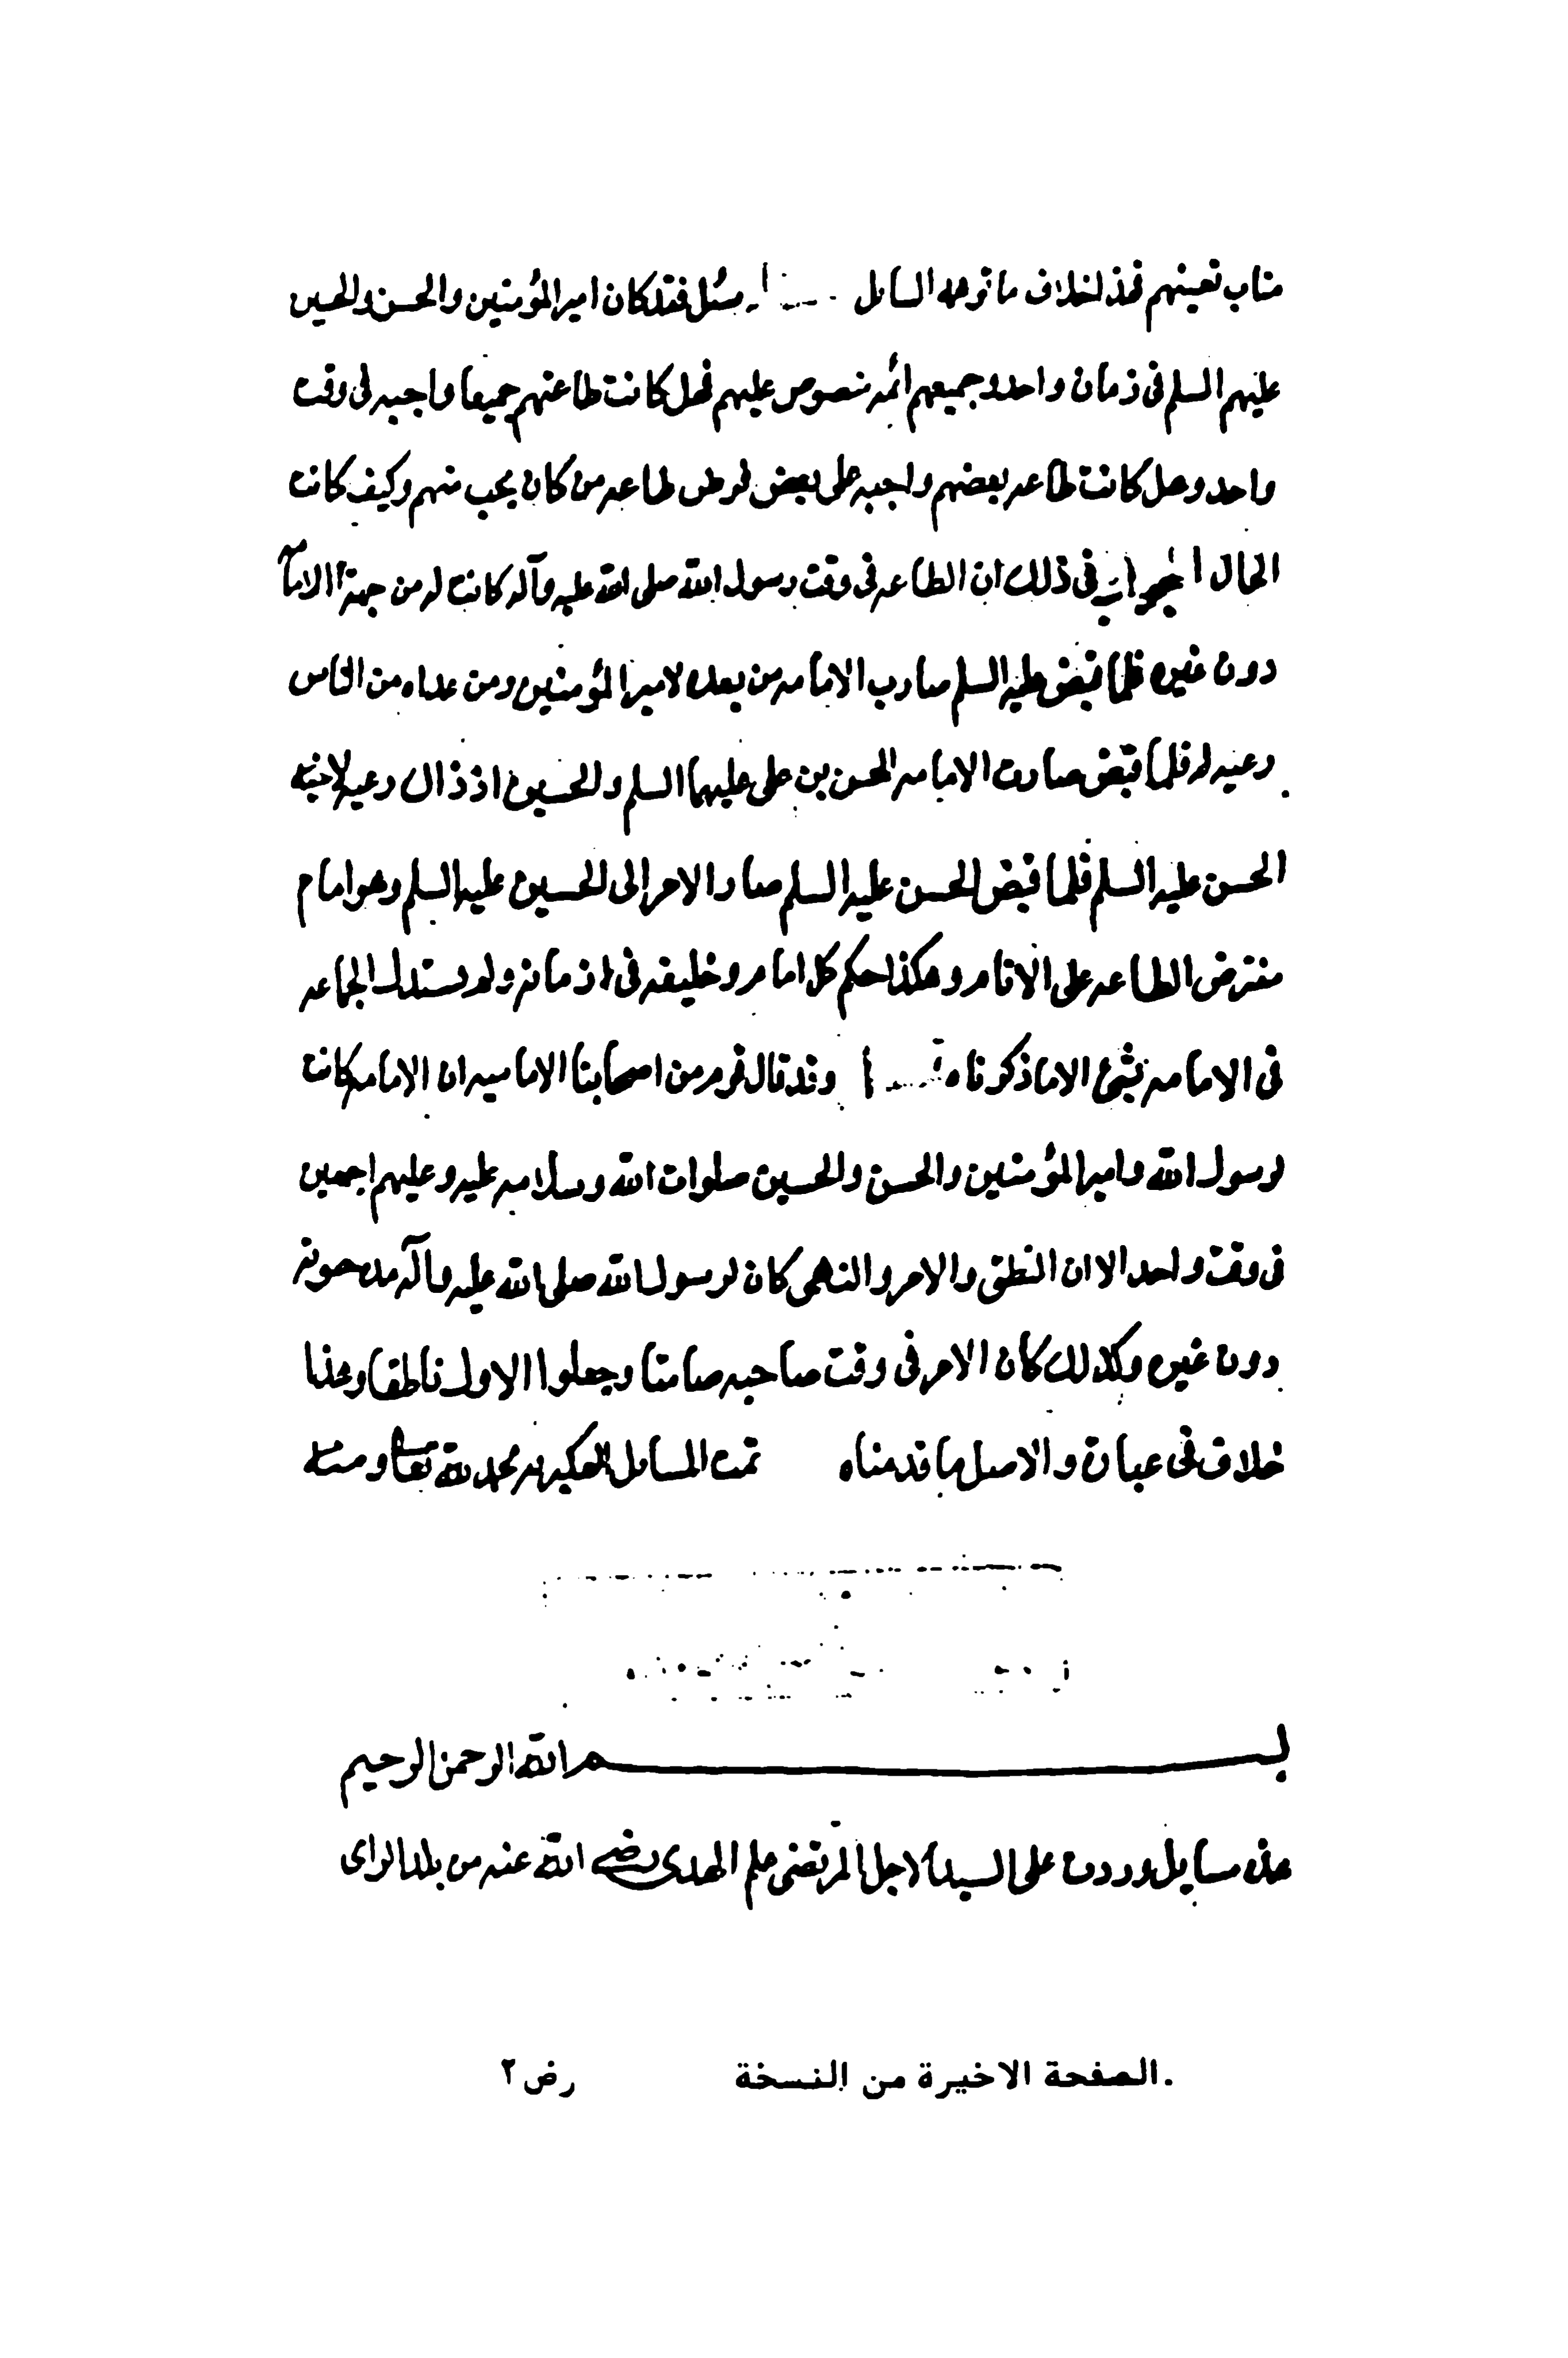 مناب تعينهم فهذا خلاف ما توهمه السائل مسئل فقد كان امير المؤمنين والحسن والحسين
عليهم السلم فى زمان واحد وجميعهم ائمه منصوص عليهم فهل كانت طاعتهم جميعا واجبه فى وقت
واحد وهل كانت طاعه بعضهم واجبه على بعض طاعه من كان يجب منهم وكيف كانت
الحال الجواب فى ذلك ان الطاعه فى وقت رسول الله صلى الله عليه وآله كانت له من جهة الامامه
دون غيره فلما قبض عليه السلم صارت الامامه من بعده لامير المؤمنين ومن عداه من الناس
رعيه له فلما قبض صارت الامامه للحسن بن على عليهما السلم والحسين اذ ذاك رعيه لاخيه
الحسن عليه السلم فلما قبض الحسن عليه السلم صار الامر الى الحسين عليه السلم وهو امام
مفترض الطاعه على الانام وهكذا حكم كل امام وخليفه فى زمانه ولم الجماعه
فى الامامه بشئ الا ما ذكرناه وقد قال قوم من اصحابنا الاماميه ان الامامه كانت
لرسول الله وامير المؤمنين والحسن والحسين صلوات الله وسلامه عليه وعليهم اجمعين
فى وقت واحد الا ان النطق والامر والنهى كان لرسول الله صلى الله عليه وآله مدة حيوته
دون غيره وكذلك كان الامر فى وقت صاحبه صامتا وجعلوا الاول ناطقا وهذا
خلاف فى عبارة والاصل ما قدمناه تمت المسايل العكبريه بحمد لله تعا ومنه
بسم الله الرحمن الرحيم
هذه مسايل وردت على السيد الاجل المرتضى علم الهدى رضى الله عنه من بلد الراى
الصفحة الاخيرة من النسخة رض ٢